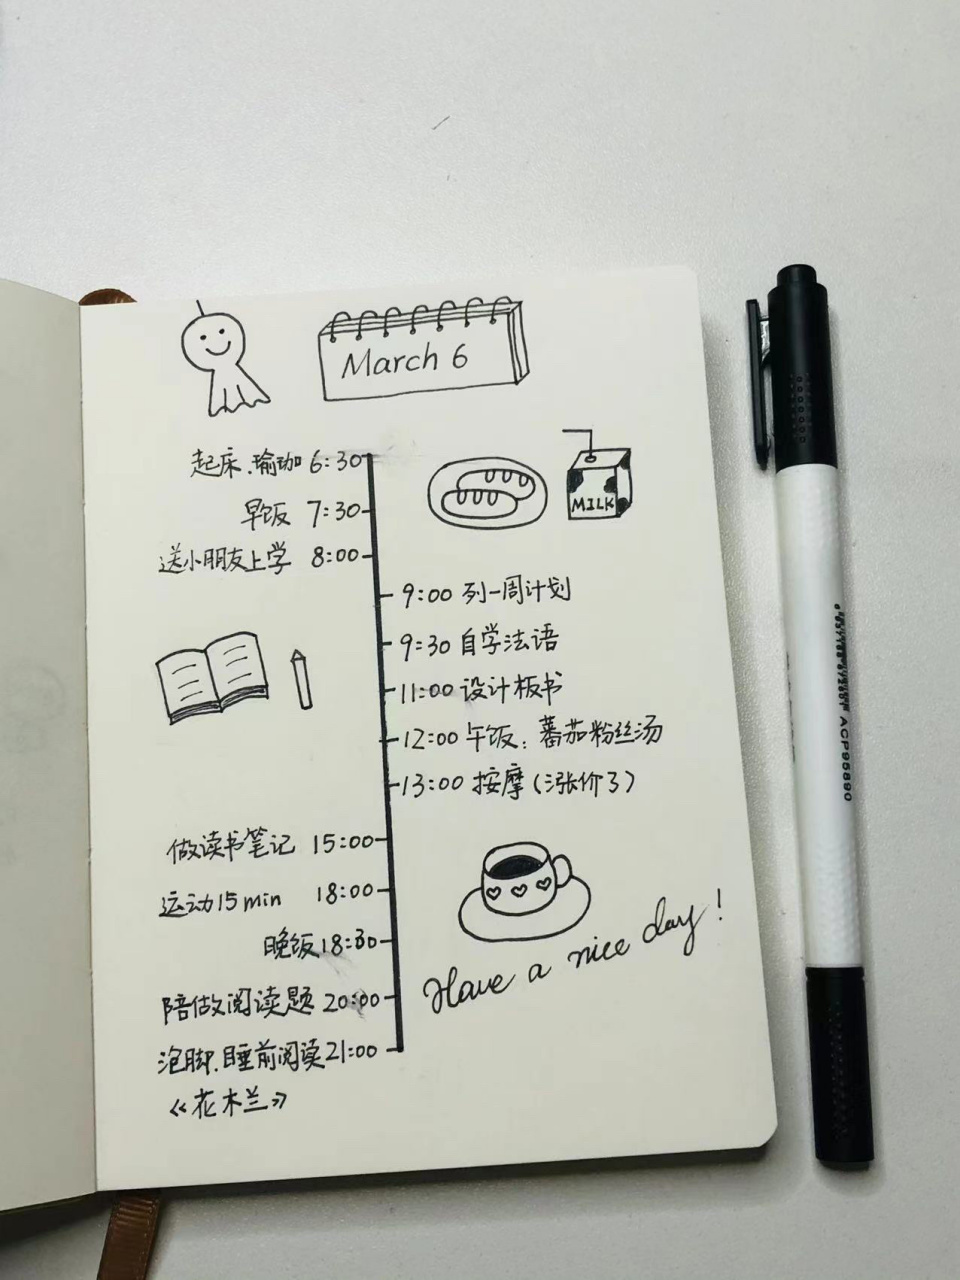 March 6
起床、瑜珈 6:30
早饭 7:30
MILK
送小朋友上学 8:00
9:00 列一周计划
9:30 自学法语
11:00 设计板书
12:00 午饭：蕃茄粉丝汤
13:00 按摩(涨价了)
做读书笔记 15:00
运动15min 18:00
晚饭18:30
Have a nice day!
陪做阅读题 20:00
泡脚、睡前阅读21:00
《花木兰》
ACP95890